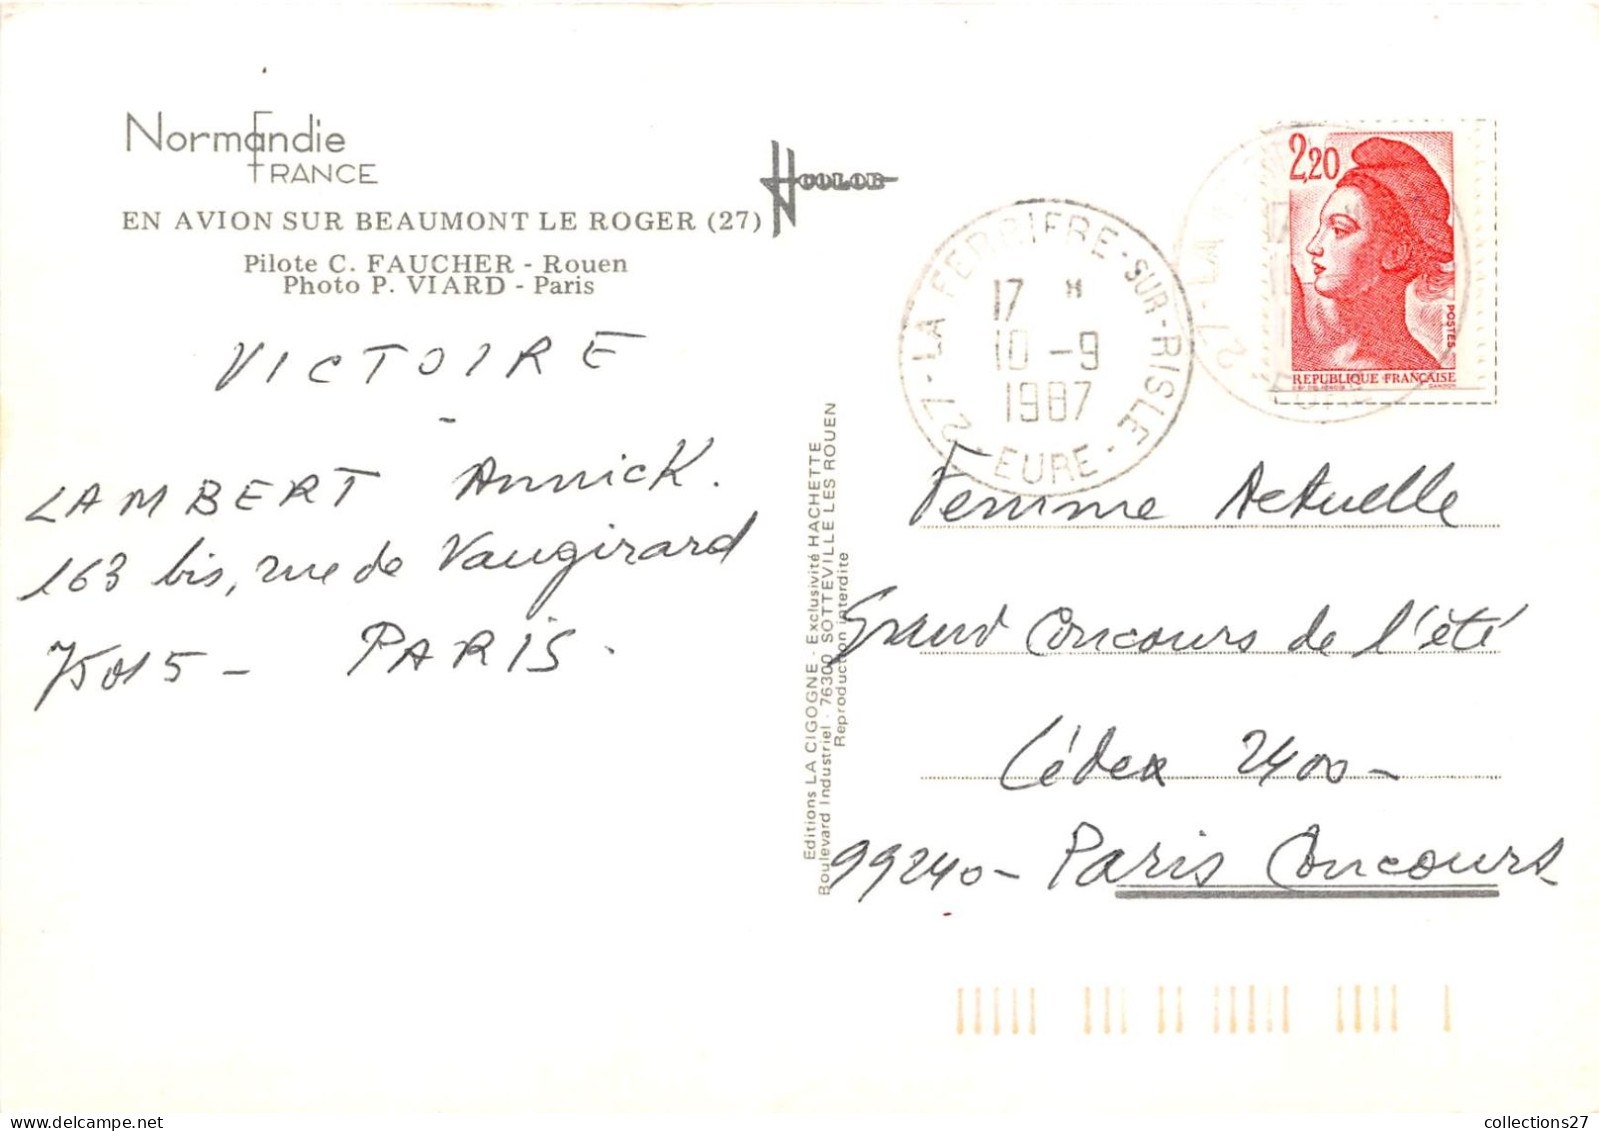 Normandie
FRANCE
EN AVION SUR BEAUMONT LE ROGER (27)
Pilote C. FAUCHER - Rouen
Photo P. VIARD - Paris
COLOR
VICTOIRE
-
LAMBERT Annick.
163 bis, rue de Vaugirard
75015 - PARIS.
Editions LA CIGOGNE - Exclusivité HACHETTE
Boulevard Industriel - 76300 SOTTEVILLE LES ROUEN
Reproduction interdite
27 - LA FERRIERE-SUR-RISLE - EURE -
17 H
10 -9
1987
2,20
POSTES
REPUBLIQUE FRANÇAISE
GANDON
Femme Actuelle
Grand Concours de l'été
Cédex 2400 -
99240 - Paris Concours
collections27